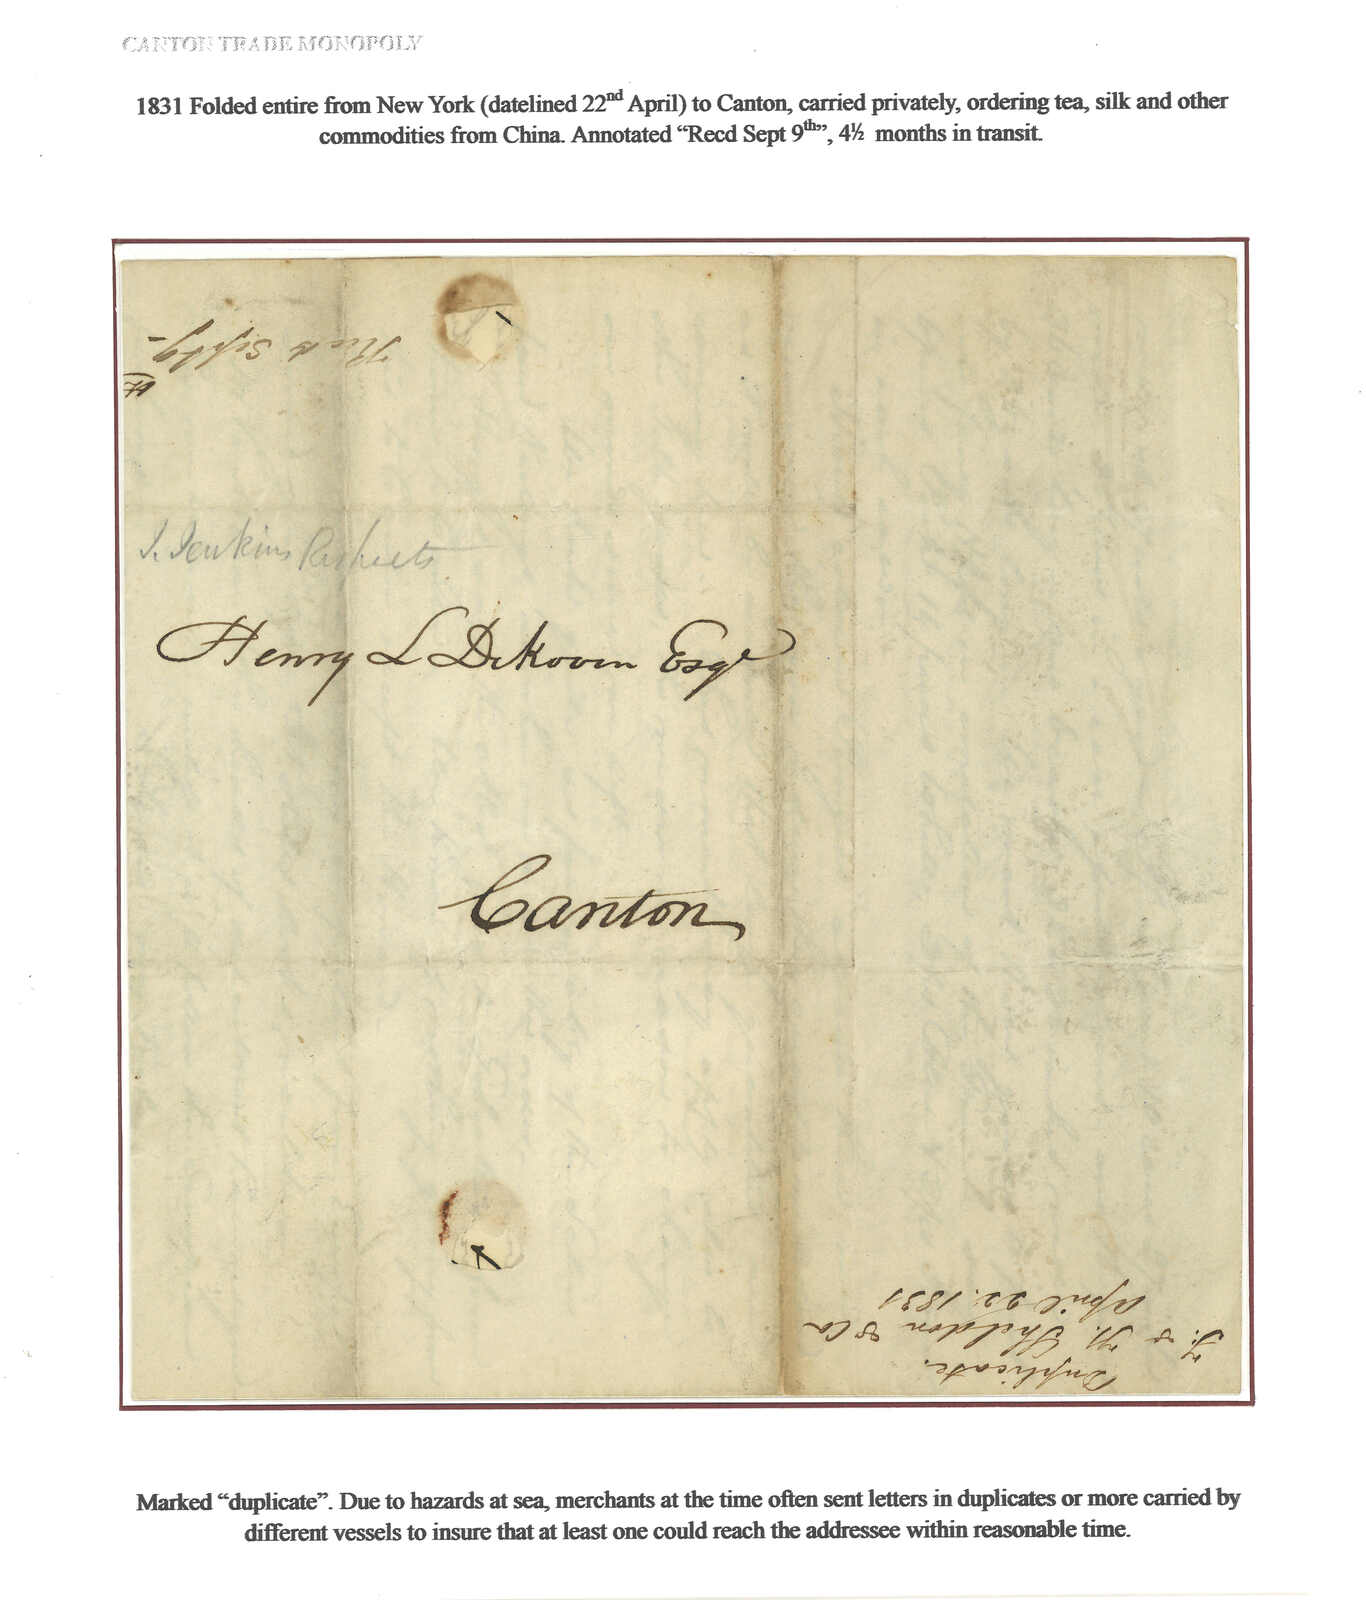 CANTON TRADE MONOPOLY
1831 Folded entire from New York (datelined 22nd April) to Canton, carried privately, ordering tea, silk and other
commodities from China. Annotated “Recd Sept 9th”, 4½ months in transit.
Recd Sept 9
J. Jenkins
Henry L DeKoven Esqr
Canton
Duplicate.
F. & H. Sheldon & Co
April 22. 1831
Marked “duplicate”. Due to hazards at sea, merchants at the time often sent letters in duplicates or more carried by
different vessels to insure that at least one could reach the addressee within reasonable time.